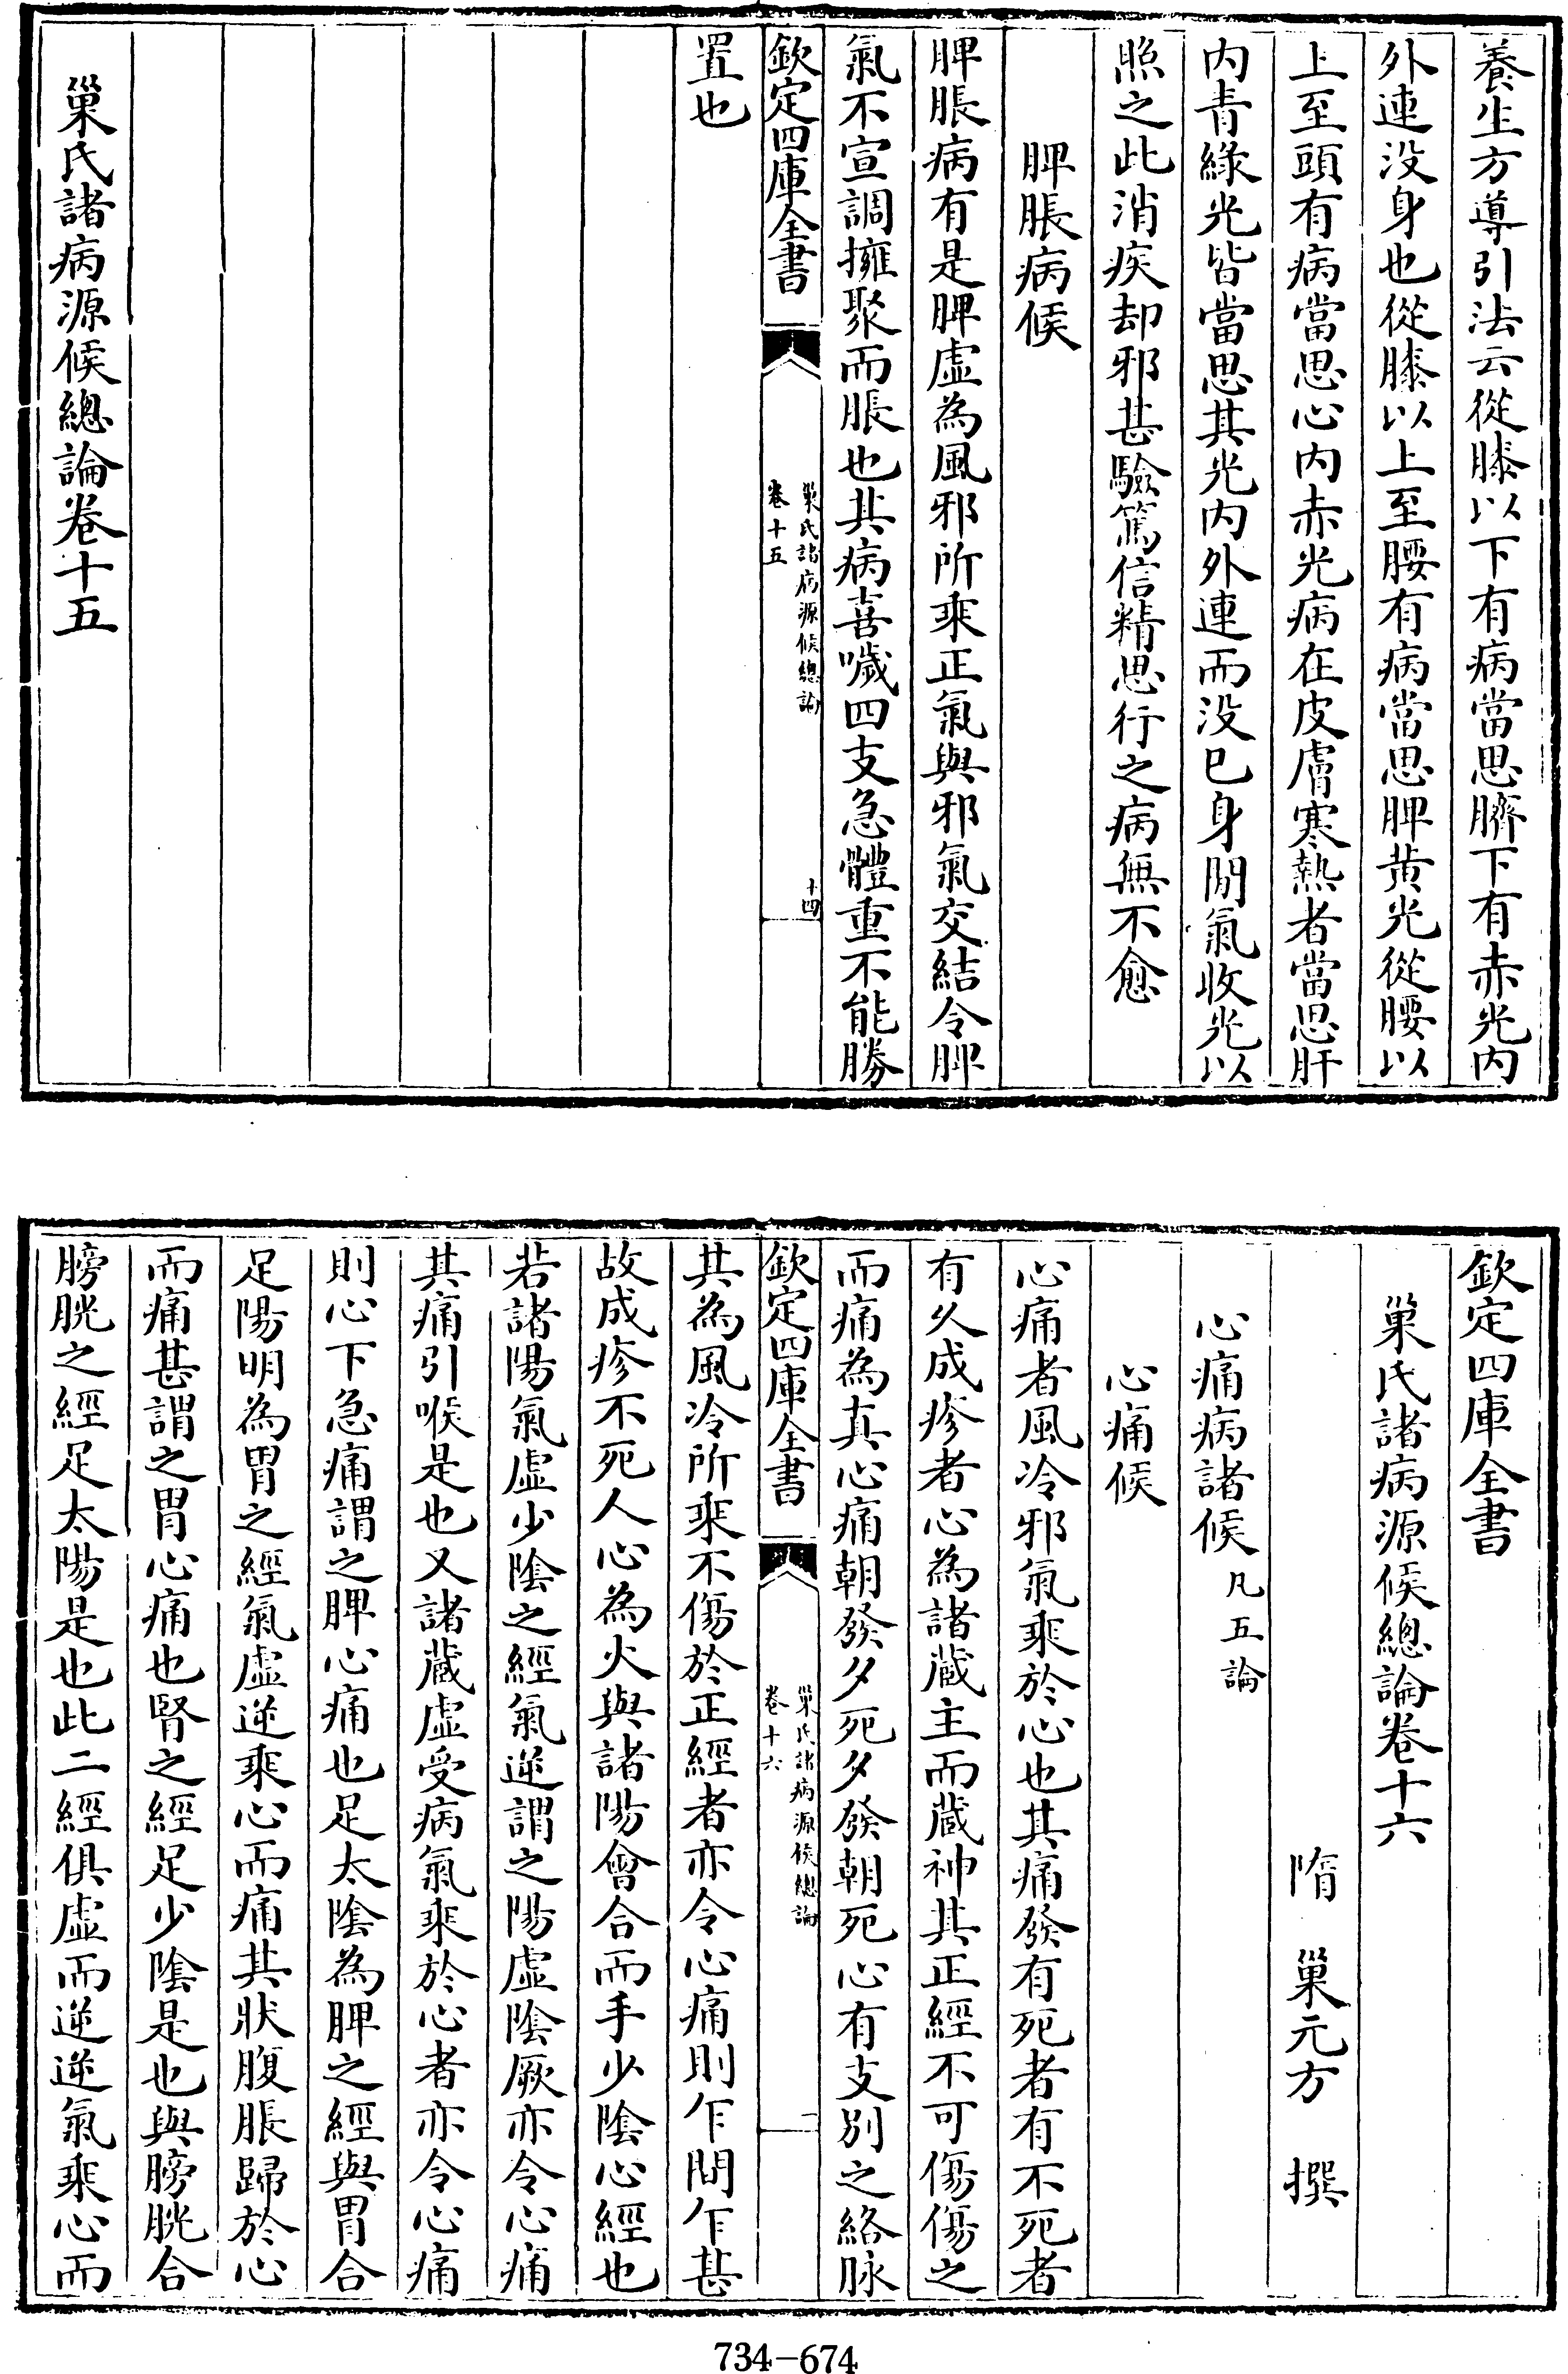 養生方導引法云從膝以下有病當思臍下有赤光内
外連没身也從膝以上至腰有病當思脾黄光從腰以
上至頭有病當思心内赤光病在皮膚寒熱者當思肝
内青緑光皆當思其光内外連而没已身閉氣收光以
照之此消疾却邪甚驗篤信精思行之病無不愈
脾脹病候
脾脹病有是脾虚為風邪所乘正氣與邪氣交結令脾
氣不宣調擁聚而脹也其病喜噦四支急體重不能勝
欽定四庫全書
巢氏諸病源候總論
卷十五
十四
置也
巢氏諸病源候總論卷十五
欽定四庫全書
巢氏諸病源候總論卷十六
隋 巢元方 撰
心痛病諸候 凡五論
心痛候
心痛者風冷邪氣乘於心也其痛發有死者有不死者
有久成疹者心為諸蔵主而蔵神其正經不可傷傷之
而痛為真心痛朝發夕死夕發朝死心有支别之絡脉
欽定四庫全書
巢氏諸病源候總論
卷十六
一
其為風冷所乘不傷於正經者亦令心痛則乍間乍甚
故成疹不死人心為火與諸陽會合而手少陰心經也
若諸陽氣虚少陰之經氣逆謂之陽虚陰厥亦令心痛
其痛引喉是也又諸蔵虚受病氣乘於心者亦令心痛
則心下急痛謂之脾心痛也足太陰為脾之經與胃合
足陽明為胃之經氣虚逆乘心而痛其狀腹脹歸於心
而痛甚謂之胃心痛也腎之經足少陰是也與膀胱合
膀胱之經足太陽是也此二經俱虚而逆逆氣乘心而
734-674